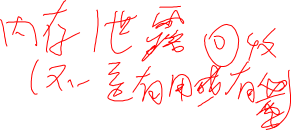 内存泄露回收
(不一定有用或有